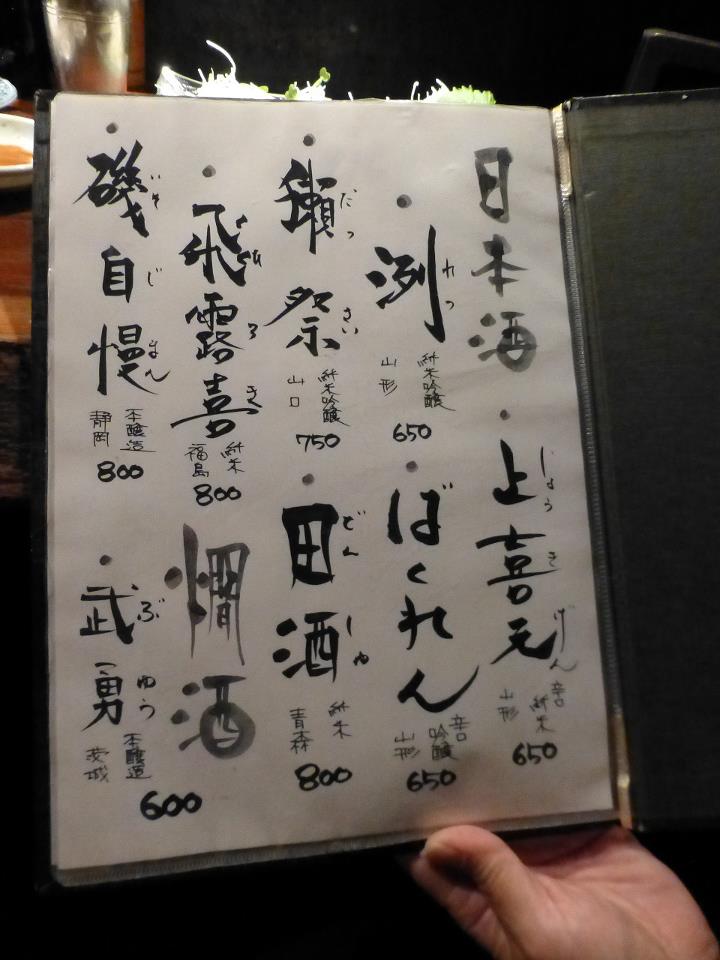 日本酒
・上喜元
じょうきげん
辛口 純米
山形
650
・洌
れつ
純米吟醸
山形
650
・ばくれん
辛口 吟醸
山形
650
・獺祭
だっさい
純米吟醸
山口
750
・田酒
でんしゅ
純米
青森
800
・飛露喜
ひろき
純米
福島
800
燗酒
・磯自慢
いそじまん
本醸造
静岡
800
・武勇
ぶゆう
本醸造
茨城
600